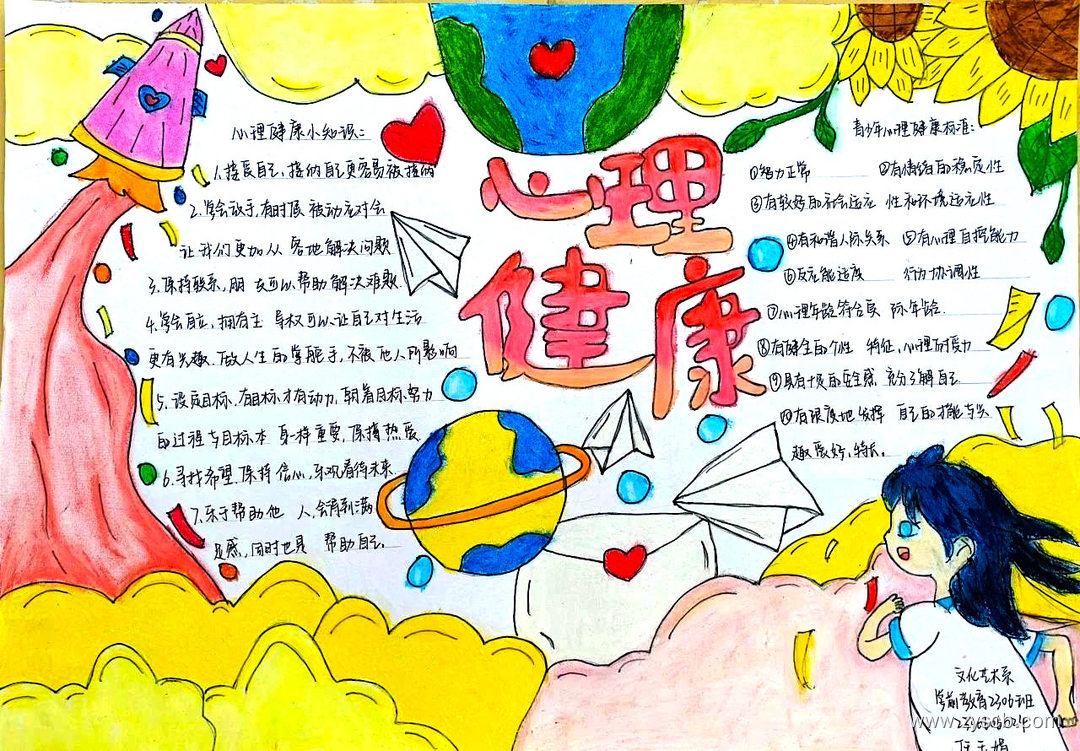 心理健康
心理健康小知识：
1.接受自己、接纳自己更容易被接纳
2.学会放手,有时候被动应对会
让我们更加从容地解决问题
3.保持联系,朋友可以帮助解决难题.
4.学会自立,拥有主导权可以让自己对生活
更有兴趣.做人生的掌舵手,不被他人所影响
5.设定目标.有目标才有动力,朝着目标努力
的过程与目标本身一样重要,保持热爱
6.寻找希望.保持信心,乐观看待未来.
7.乐于帮助他人,会得到满
足感,同时也是帮助自己.
青少年心理健康标准：
①智力正常 ②有情绪的稳定性
③有较好的社会适应性和环境适应性
④有和谐人际关系 ⑤有心理自控能力
⑥反应能适度 行为协调性
⑦心理年龄符合实际年龄.
⑧有健全的个性特征,心理耐受力
⑨具有十足的安全感 充分了解自己
⑩有限度地发挥自己的才能与兴
趣爱好,特长。
文化艺术系
学前教育2306班